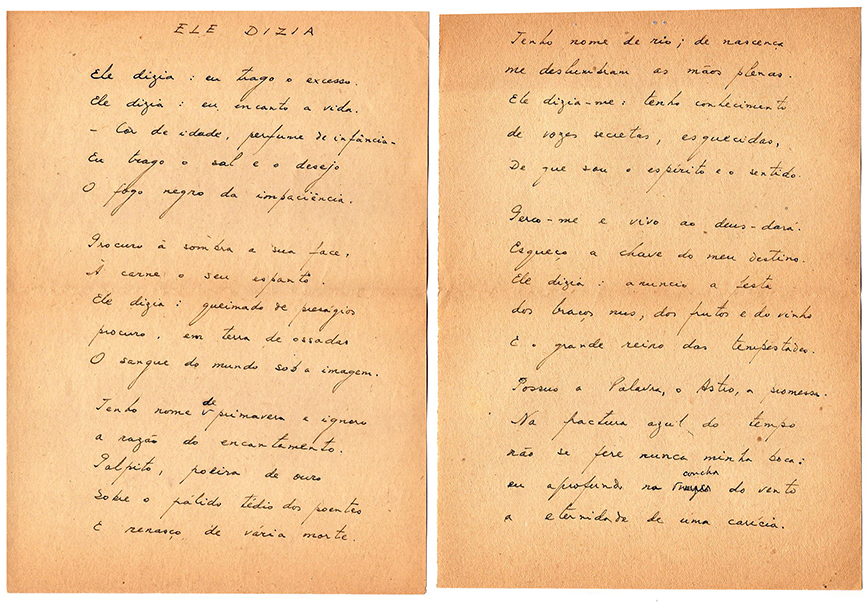 ELE DIZIA
Ele dizia: eu trago o excesso.
Ele dizia: eu encanto a vida.
- Cor de idade, perfume de infância -
Eu trago o sal e o desejo
O fogo negro da impaciência.
Procuro à sombra a sua face,
À carne o seu espanto.
Ele dizia: queimado de presságios
procuro, em terra de ossadas
O sangue do mundo sob a imagem.
Tenho nome de primavera e ignoro
a razão do encantamento.
Palpito, poeira de ouro
Sobre o pálido tédio dos poentes
E renasço de vária morte.
Tenho nome de rio; de nascença
me deslumbram as mãos plenas.
Ele dizia-me: tenho conhecimento
de vozes secretas, esquecidas,
De que sou o espírito e o sentido.
Perco-me e vivo ao deus-dará.
Esqueço a chave do meu destino.
Ele dizia: anuncio a festa
dos braços nus, dos frutos e do vinho
E o grande reino das tempestades.
Possuo a Palavra, o Astro, a promessa.
Na fractura azul do tempo
não se fere nunca minha boca:
eu aprofundo na concha do vento
a eternidade de uma carícia.